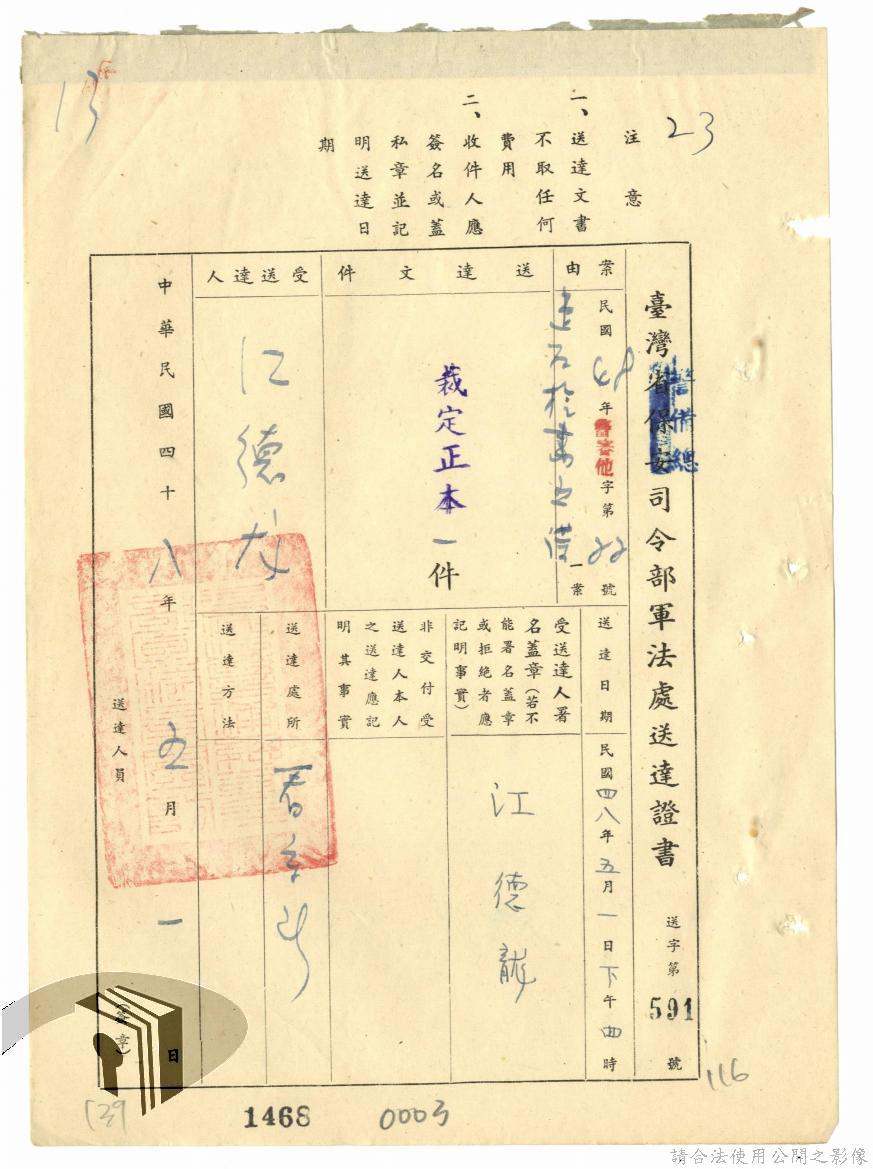 13
23
注意
一、送達文書
不取任何
費用
二、收件人應
簽名或蓋
私章並記
明送達日
期
臺灣省保安司令部軍法處送達證書
警備總
送字第
591
號
案由
民國48年警審他字第22號
一案
送達文件
裁定正本一件
受送達人
江德龙
送達日期
民國四八年五月一日下午四時
受送達人署
名蓋章(若不
能署名蓋章
或拒絕者應
記明事實)
江德龍
非交付受
送達人本人
之送達應記
明其事實
送達處所
看守所
送達方法
中華民國四十八年五月一日
送達人員
(簽章)
116
139
1468
0003
請合法使用公開之影像